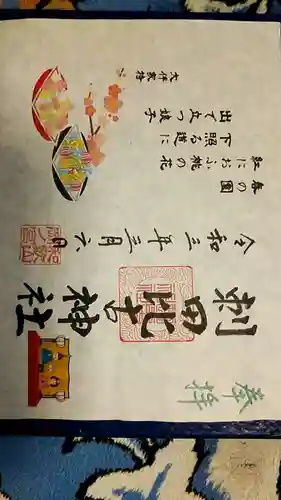 奉拝
刺田比古神社
令和三年三月六日
春の園
紅におふ桃の花
下照る道に
出で立つ娘子
大伴家持